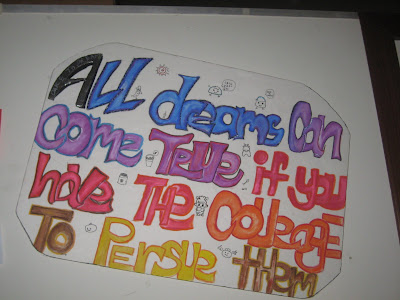 ALL dreams Can
Come True if you
have THE COURAGE
To Persue them